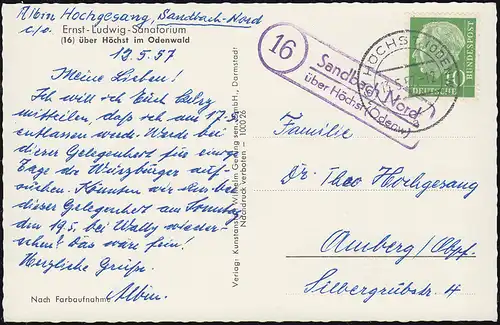 Albin Hochgesang, Sandbach-Nord
c/o. Ernst-Ludwig-Sanatorium
(16) über Höchst im Odenwald
12.5.57
Meine Lieben!
Ich will Euch kurz
mitteilen, daß ich am 17.5.
entlassen werde. Werde bei
dieser Gelegenheit für einige
Tage die Würzburger auf-
suchen. Könnten wir uns bei
dieser Gelegenheit am Sonntag
den 19.5. bei Wally wieder-
sehen? Das wäre fein!
Herzliche Grüße.
Albin.
Nach Farbaufnahme
Verlag: Kunstanstalt Wilhelm Gerling sen. GmbH., Darmstadt
Nachdruck verboten - 1000 26
16
Sandbach Nord
über Höchst (Odenw)
HÖCHST (ODENW)
DEUTSCHE
BUNDESPOST
10
Familie
Dr. Theo Hochgesang
Amberg/Obpf.
Silbergrubstr. 4